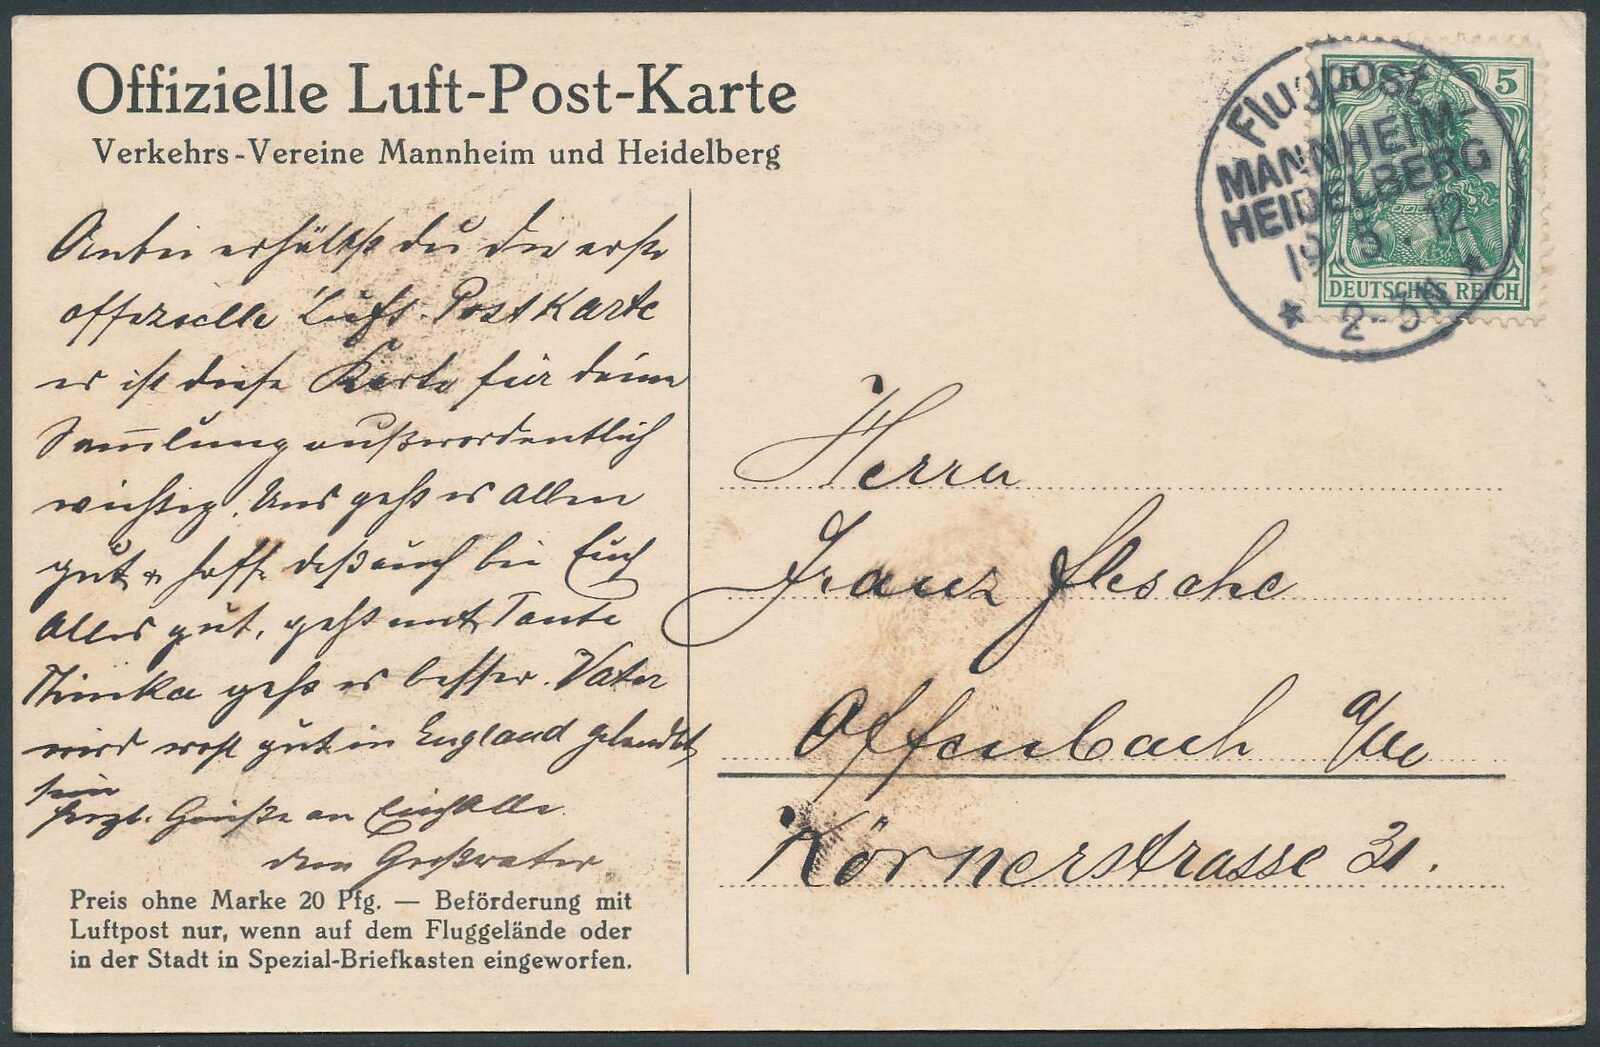 Offizielle Luft-Post-Karte
Verkehrs-Vereine Mannheim und Heidelberg
Flugpost
MANNHEIM-
HEIDELBERG
19.5.12
2-3N
5 5
DEUTSCHES REICH
Anbei erhältst du die erste
offizielle Luft-Postkarte
es ist diese Karte für deine
Sammlung außerordentlich
wichtig. Uns geht es Allen
gut & hoffe daß auch bei Euch
Alles gut, geht mit Tante
Minka geht es besser. Vater
wird wohl gut in England gelandet
sein
herzl. Grüße an Euch Alle
dein Großvater
Preis ohne Marke 20 Pfg. — Beförderung mit
Luftpost nur, wenn auf dem Fluggelände oder
in der Stadt in Spezial-Briefkasten eingeworfen.
Herrn
Franz Flesche
Offenbach a/M
Körnerstrasse 31.